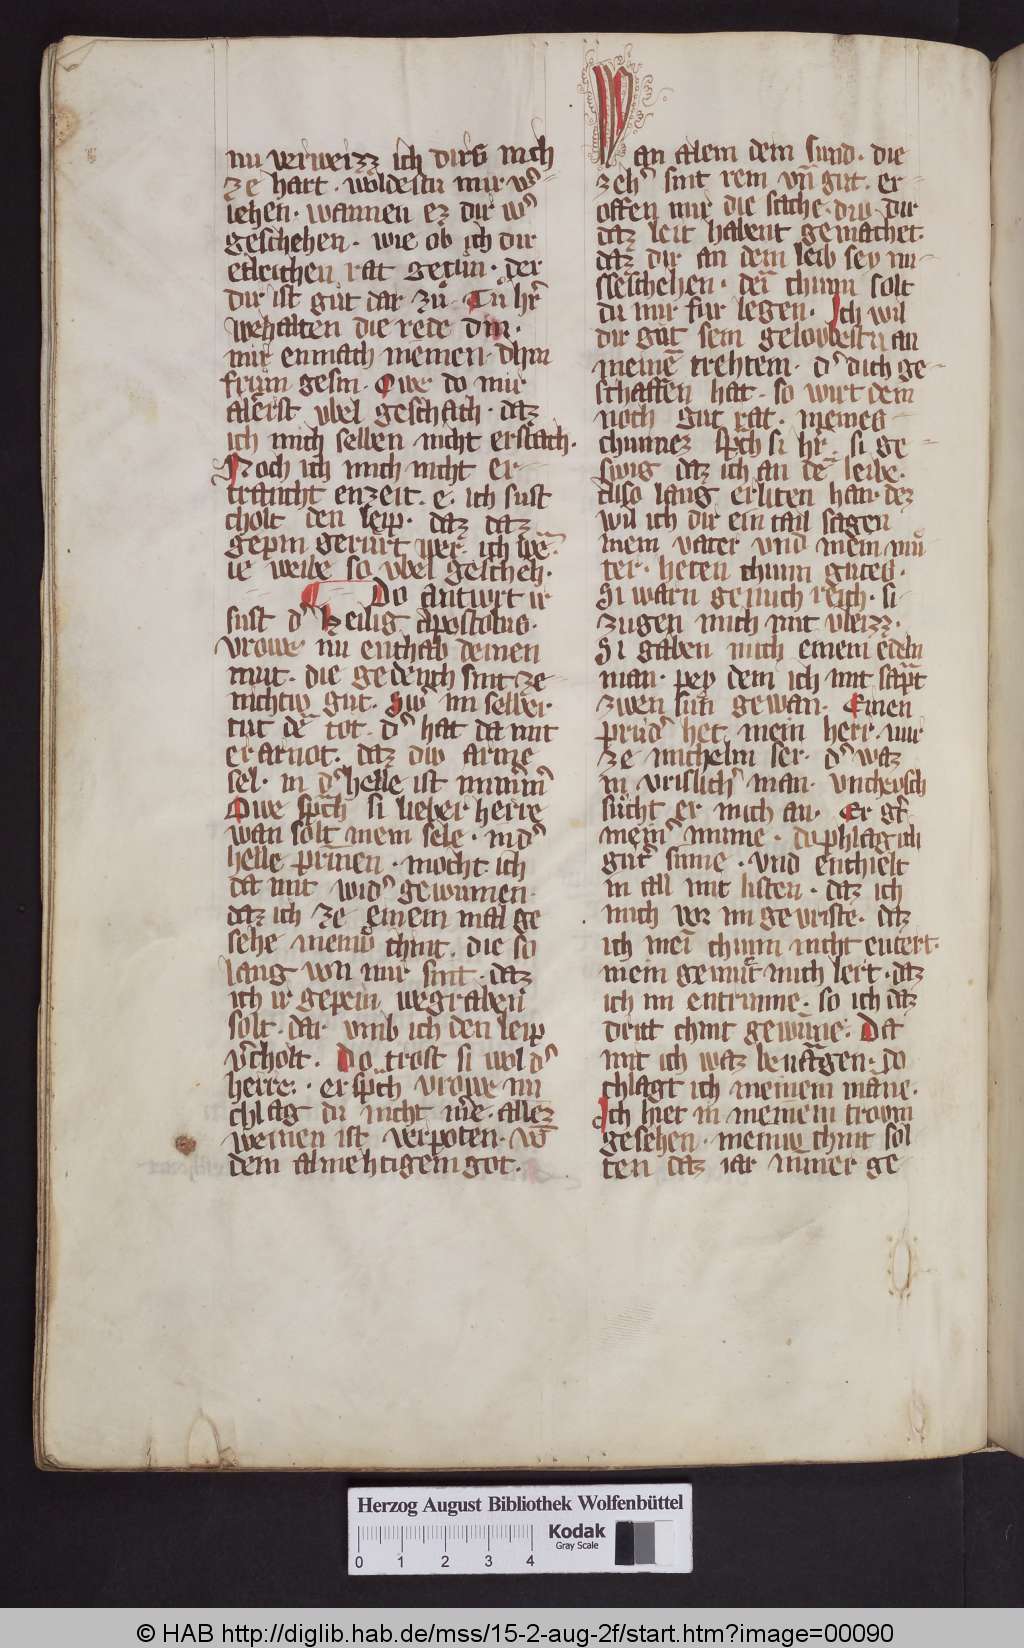 nu verweizz ich dirs nich
ze hart. woldestu mir vˢ
iehen. wannen ez dir wˢ
geschehen. wie ob ich dir
etleichen rat getuͤn. der
dir ist guͦt dar zuͦ. Tuͦ hˢr
wehalten die rede din.
mir enmach niemen dhin
frum gesin. Owe do mir
alerst vbel geschach. daz
ich mich selben nicht erstach.
Noch ich mich nicht er
trancht enzeit. e. ich sust
cholt den leip. daz daz
gepin gerurt wer. ich wē.
ie weibe so vbel gescheh.
Do antwrt ir
sust dˢ heilig apostolus.
vrowe nu enthab deinen
mut. die gedench sint ze
nichtiv gut. Swˢ im selber
tut dē tot. dˢ hat da mit
er arnot. daz div arme
sel. in dˢ helle ist nimmˢ
Owe spch si lieber herre
wan solt mein sele. in dˢ
helle prinnen. mocht ich
da mit widˢ gewinnen.
daz ich ze einem mal ge
sehe meniv chint. die so
lang von mir sint. daz
ich ir gepein wegraben
solt. dar vmb ich den leip
vˢcholt. Do trost si wol dˢ
herre. er spch vrowe nu
chlag du nicht mˢe. allez
weinen ist verpoten. vō
dem almehtigem got.
Van alem dem sund. die
zehˢ sint rein vn̄ gut. er
offen mir die sache. div dir
daz leit habent gemachet.
daz dir an dem leib sey mi
ssescheheen. den chum solt
du mir fur legen. Ich wil
dir gut sein gelowbestu an
meinē trehtein. dˢ dich ge
schaffen hat. so wirt dein
noch gut rat. meines
chunnez spch si hˢr. si ge
swig daz ich an dē leibe.
also lang erliten han. dez
wil ich dir ein tail sagen
mein vater vnd mein muͦ
ter. heten chunn gutes.
Si warn genuch reich. si
zugen mich mit vleizz.
Si gaben mich einem edeln
man. pey dem ich mit sampt
zwen sun gewan. Einen
prudˢ het mein herr. mir
ze michelm ser. dˢ waz
in vrislichˢ man. vncheusch
sucht er mich an. Er gˢt
meinˢ minne. do phlag ich
gutˢ sinne. vnd enthielt
in all mit listen. daz ich
mich vor im gevriste. daz
ich mei chunn nicht entert.
mein gemut mich lert. daz
ich im entrinne. so ich daz
dritt chint gewinne. Da
mit ich waz bevangen. do
chlagt ich meinem manne.
Ich hiet in meinem trovm
gesehen. meniv chint sol
ten daz iar nimer ge
Herzog August Bibliothek Wolfenbüttel
0 1 2 3 4
Kodak
Gray Scale
© HAB http://diglib.hab.de/mss/15-2-aug-2f/start.htm?image=00090